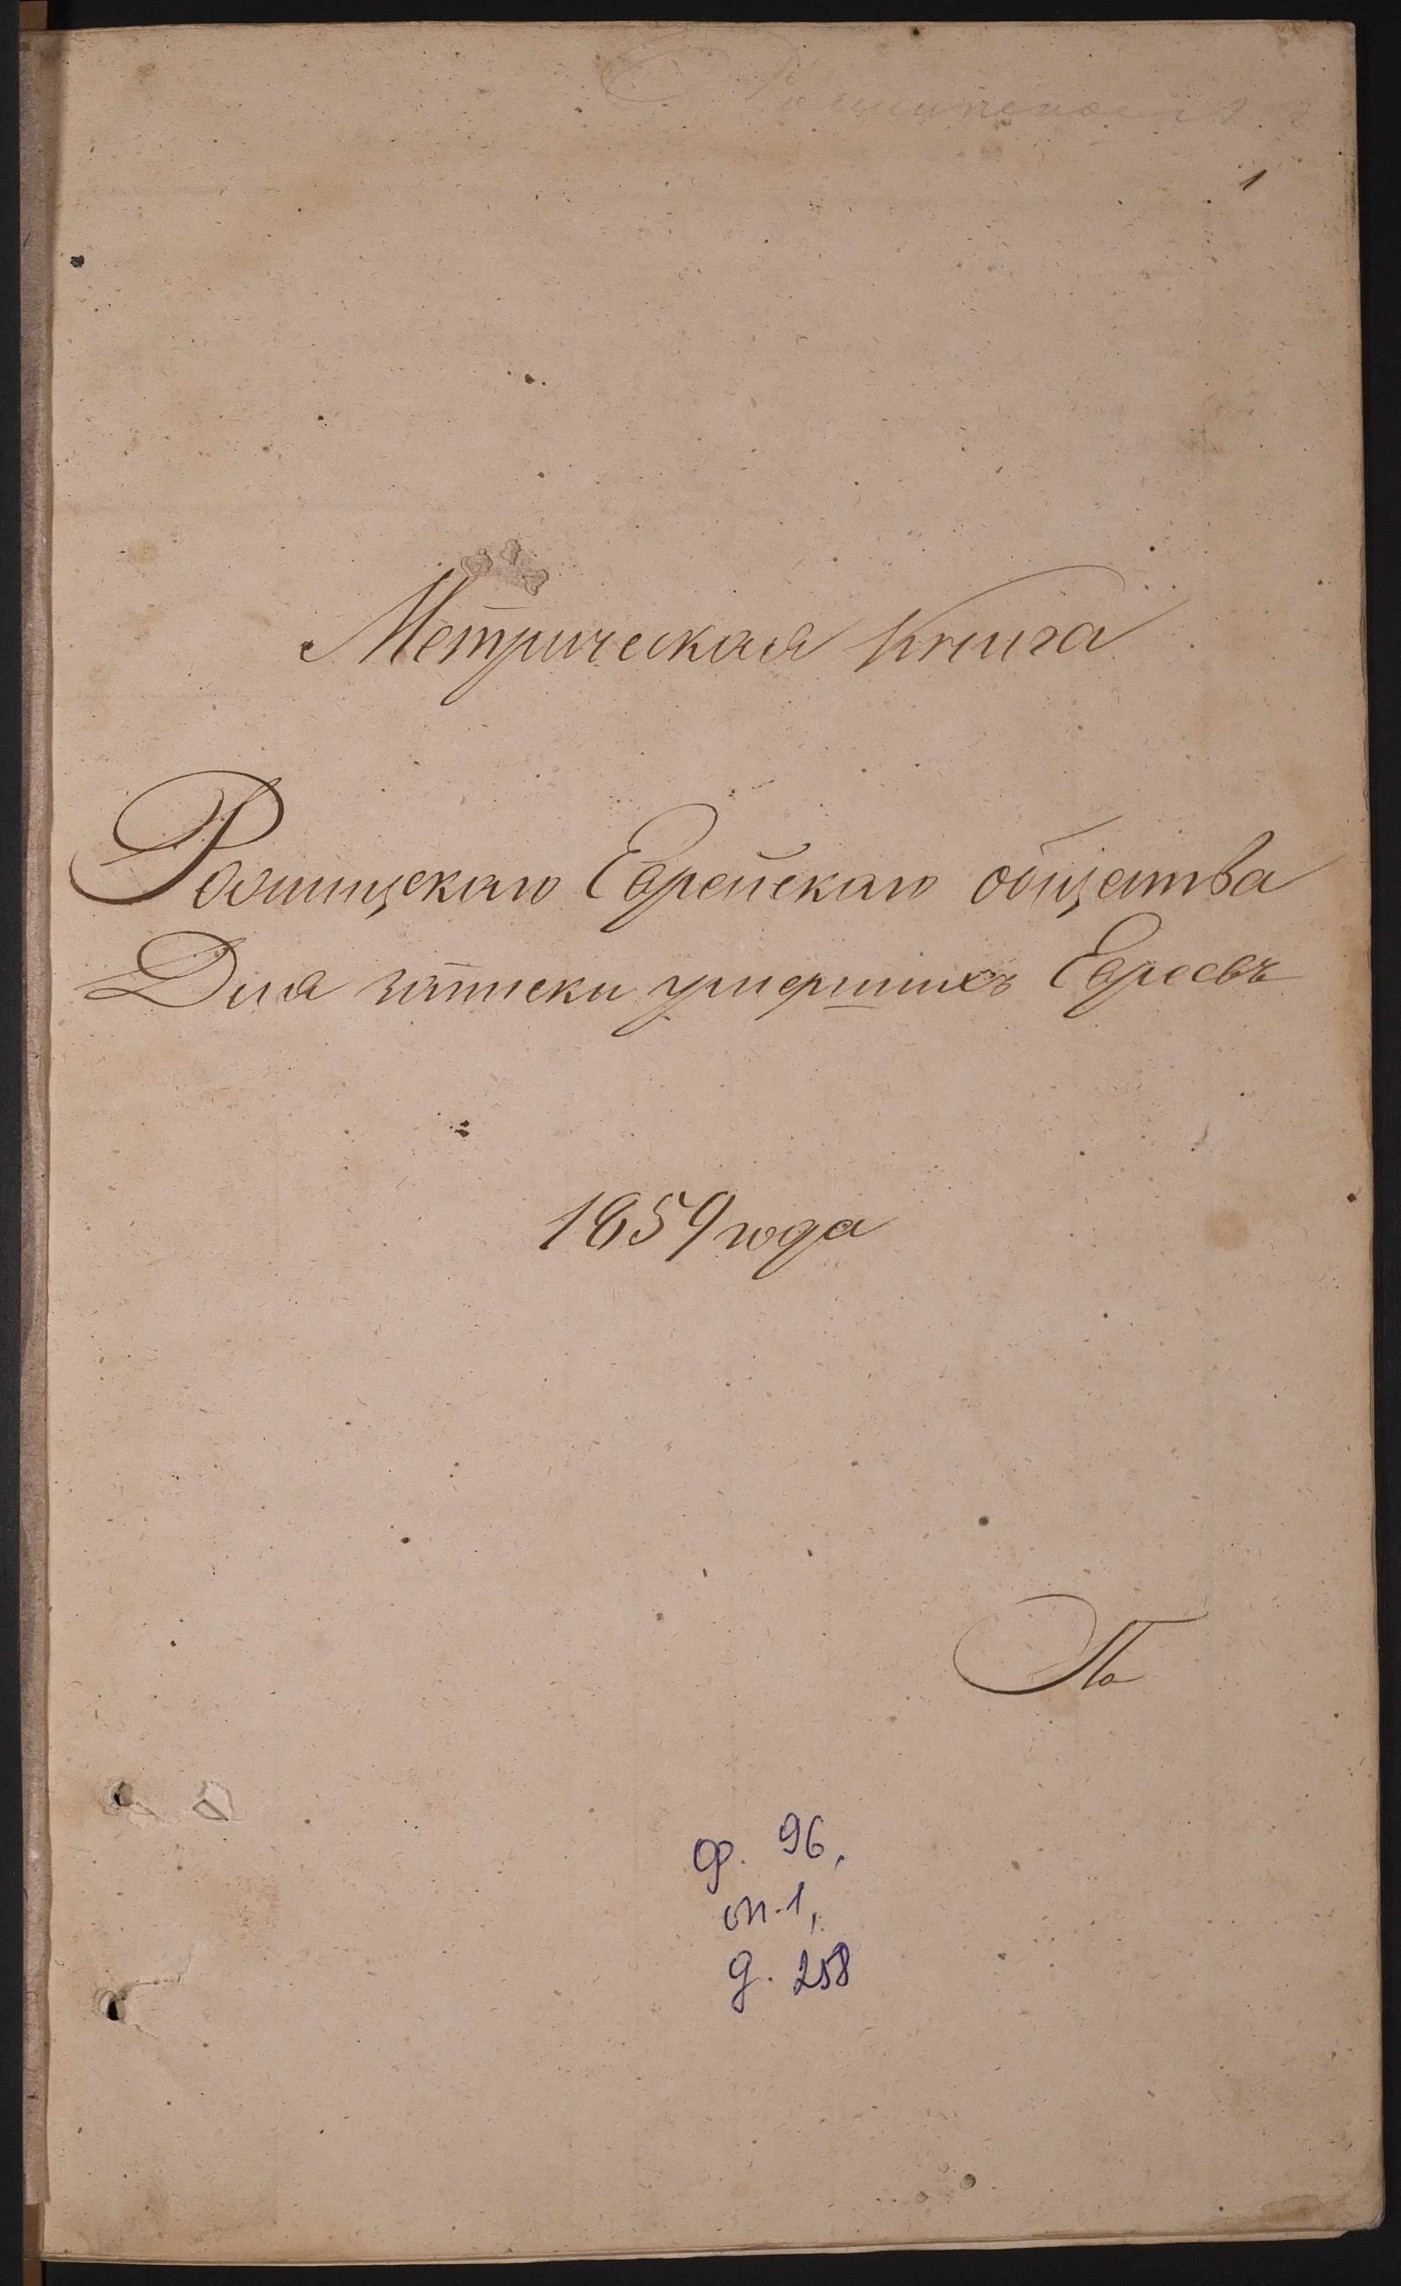 1
Метрическая Книга
Рожищскаго Еврейскаго общества
Для записки умершихъ Евреевъ
1859 года
ф. 96,
оп. 1,
д. 258